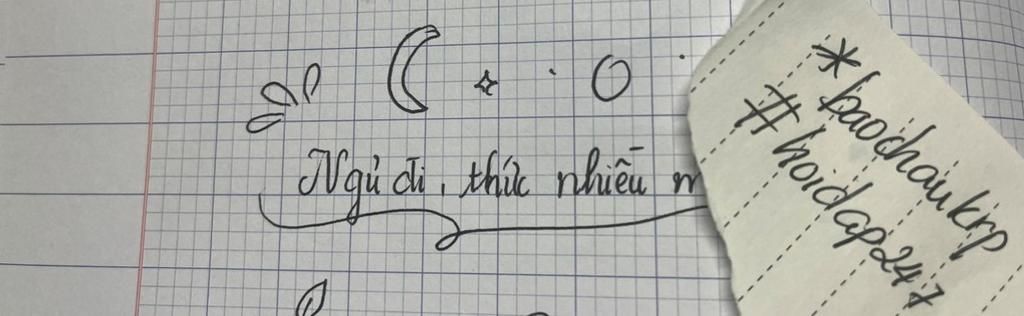 Ngủ đi, thức nhiều
*baochaukrp
#hoidap247